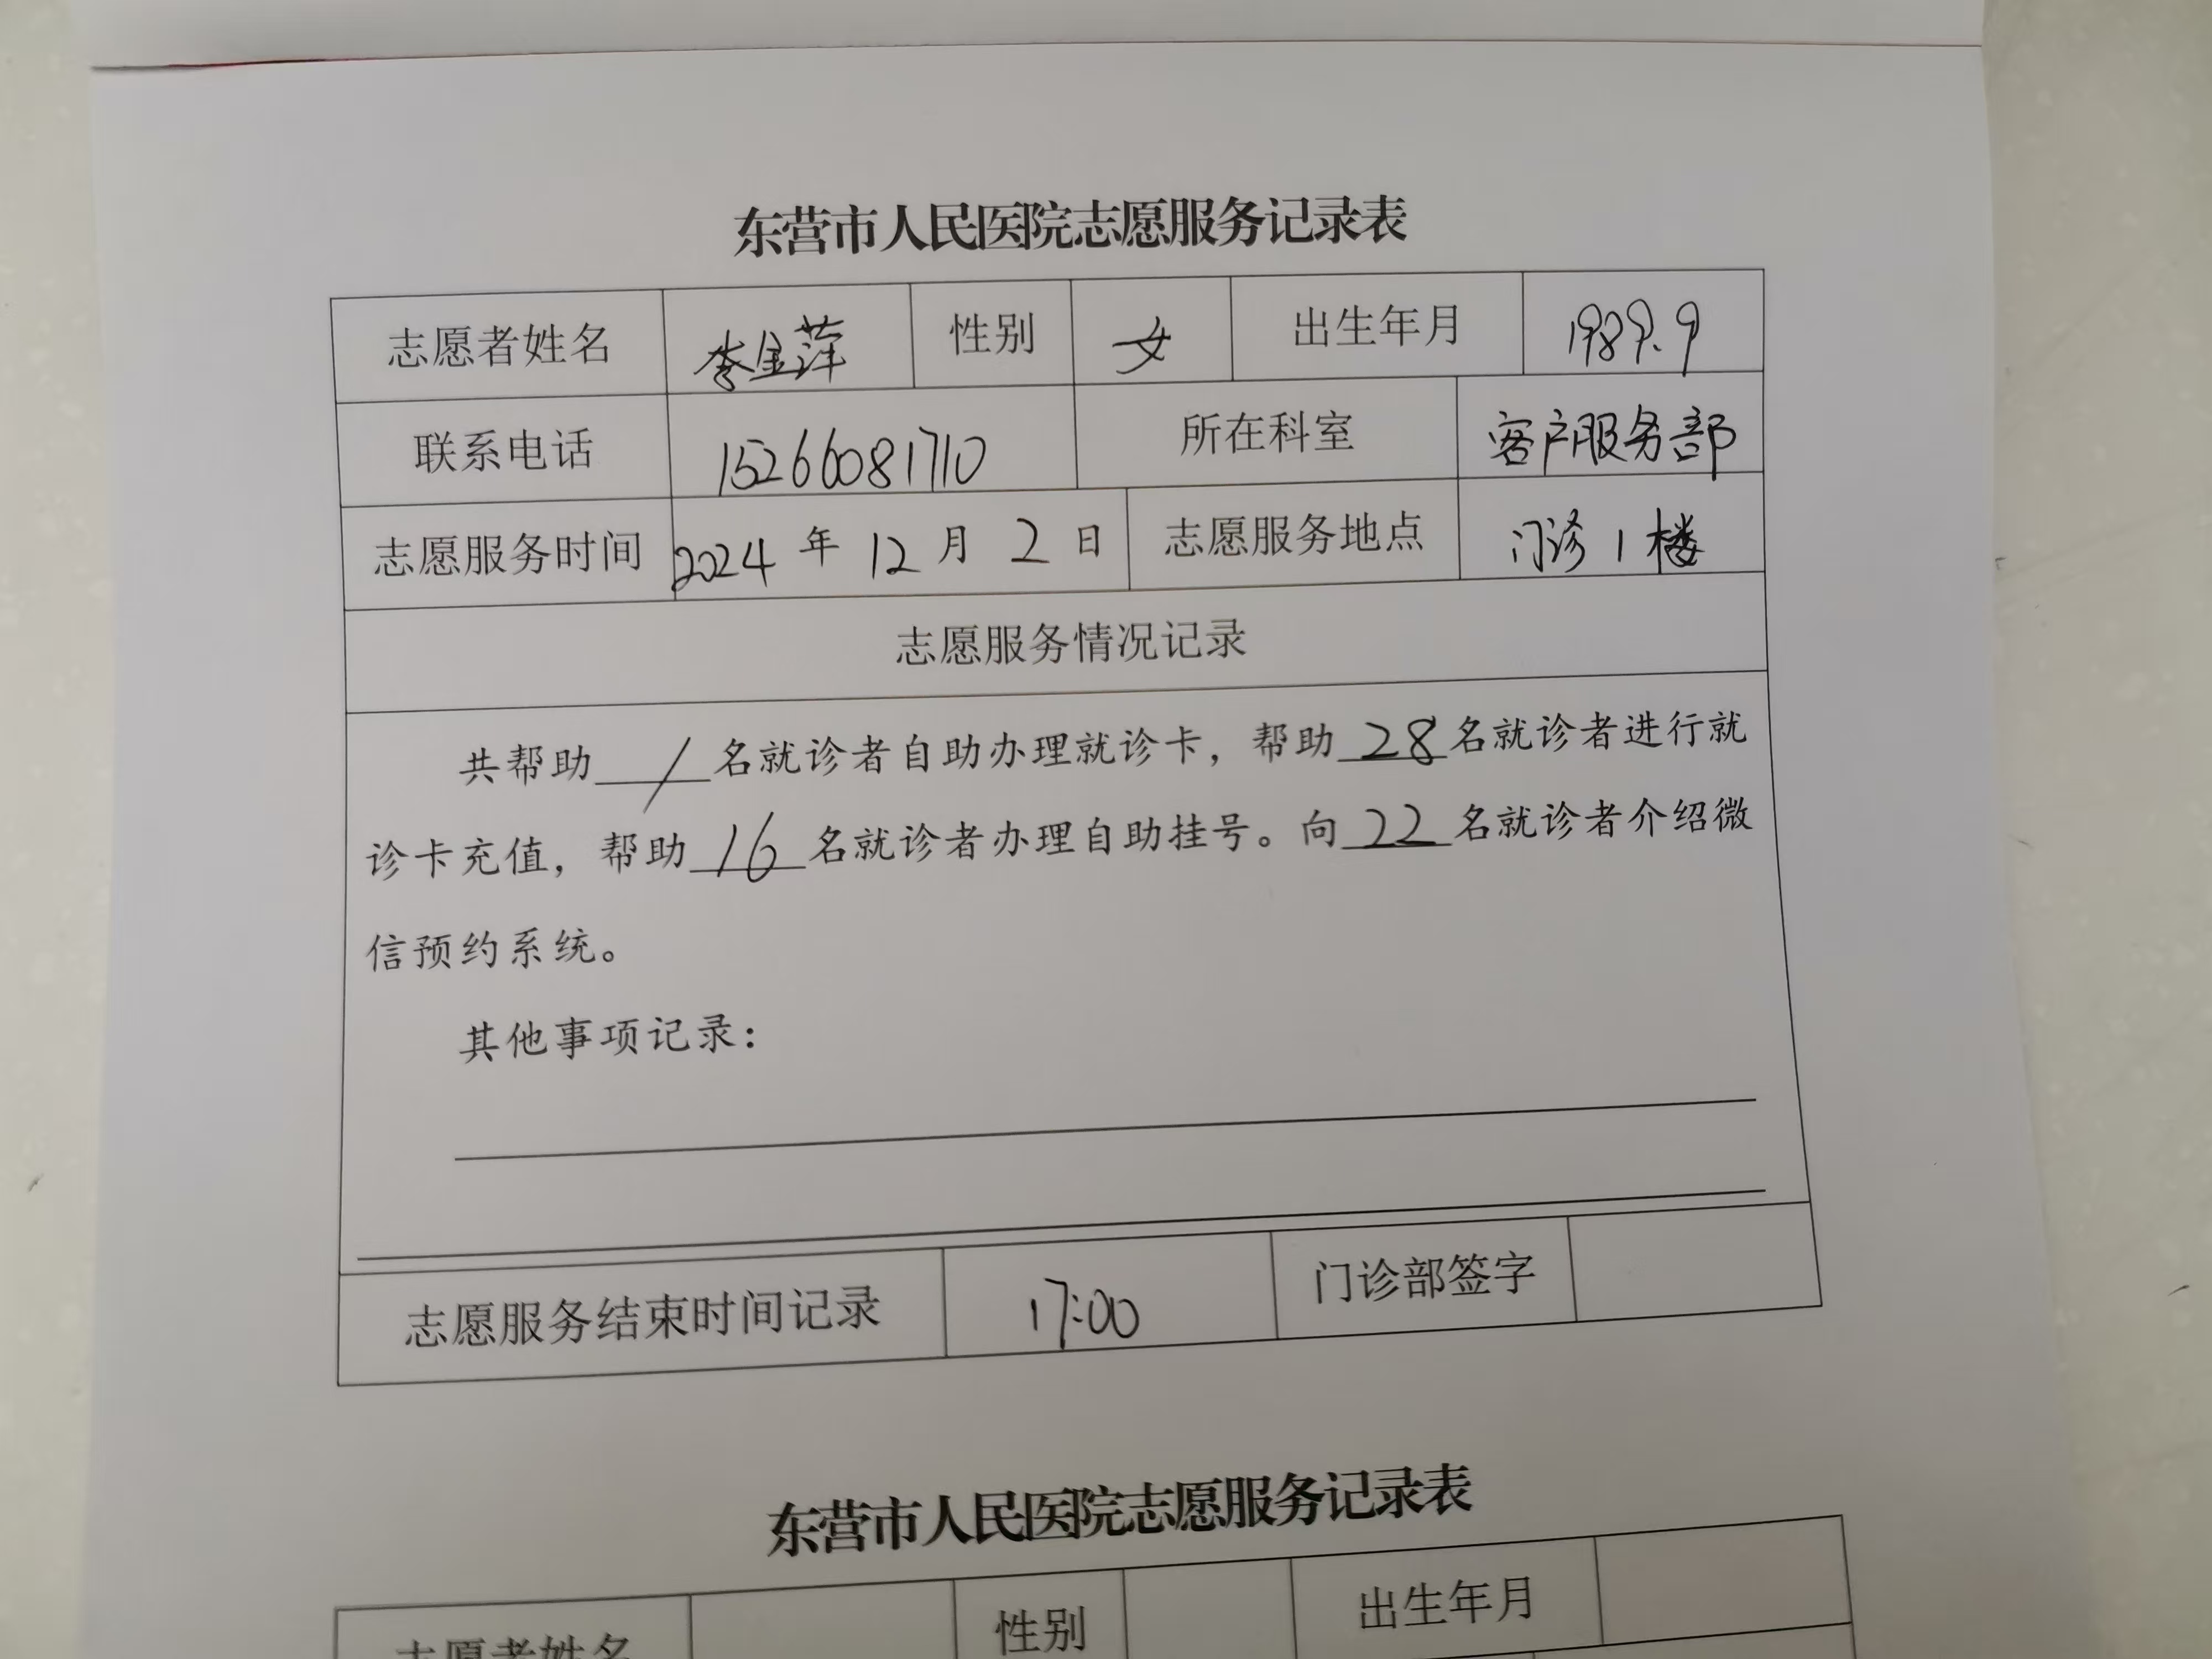 东营市人民医院志愿服务记录表
志愿者姓名 李金萍 性别 女 出生年月 1989.9
联系电话 15266081710 所在科室 客户服务部
志愿服务时间 2024 年 12 月 2 日 志愿服务地点 门诊1楼
志愿服务情况记录
共帮助 / 名就诊者自助办理就诊卡，帮助 28 名就诊者进行就
诊卡充值，帮助 16 名就诊者办理自助挂号。向 22 名就诊者介绍微
信预约系统。
其他事项记录：
志愿服务结束时间记录 17:00 门诊部签字
东营市人民医院志愿服务记录表
志愿者姓名 性别 出生年月